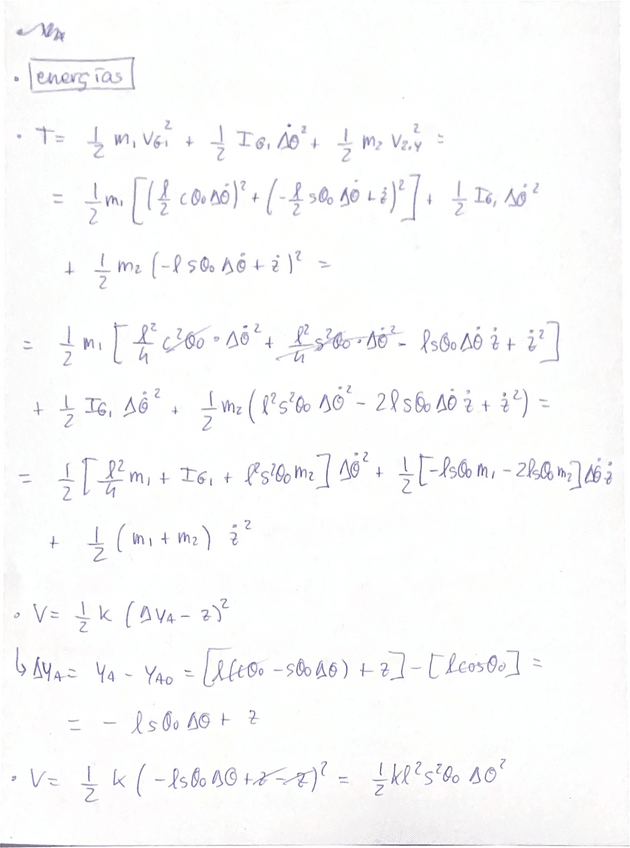 • energías
• T = 1/2 m₁ V_G₁² + 1/2 I_G₁ Δθ̇² + 1/2 m₂ V₂,y² =
= 1/2 m₁ [(l/2 cθ₀ Δθ̇)² + (-l/2 sθ₀ Δθ̇ + ż)²] + 1/2 I_G₁ Δθ̇²
+ 1/2 m₂ (-l sθ₀ Δθ̇ + ż)² =
= 1/2 m₁ [l²/4 c²θ₀ · Δθ̇² + l²/4 s²θ₀ · Δθ̇² - l sθ₀ Δθ̇ ż + ż²]
+ 1/2 I_G₁ Δθ̇² + 1/2 m₂ (l² s²θ₀ Δθ̇² - 2l sθ₀ Δθ̇ ż + ż²) =
= 1/2 [l²/4 m₁ + I_G₁ + l² s²θ₀ m₂] Δθ̇² + 1/2 [-l sθ₀ m₁ - 2l sθ₀ m₂] Δθ̇ ż
+ 1/2 (m₁ + m₂) ż²
• V = 1/2 k (Δy_A - z)²
↳ Δy_A = y_A - y_A0 = [l(cθ₀ - sθ₀ Δθ) + z] - [l cosθ₀] =
= - l sθ₀ Δθ + z
• V = 1/2 k (-l sθ₀ Δθ + z - z)² = 1/2 k l² s²θ₀ Δθ²